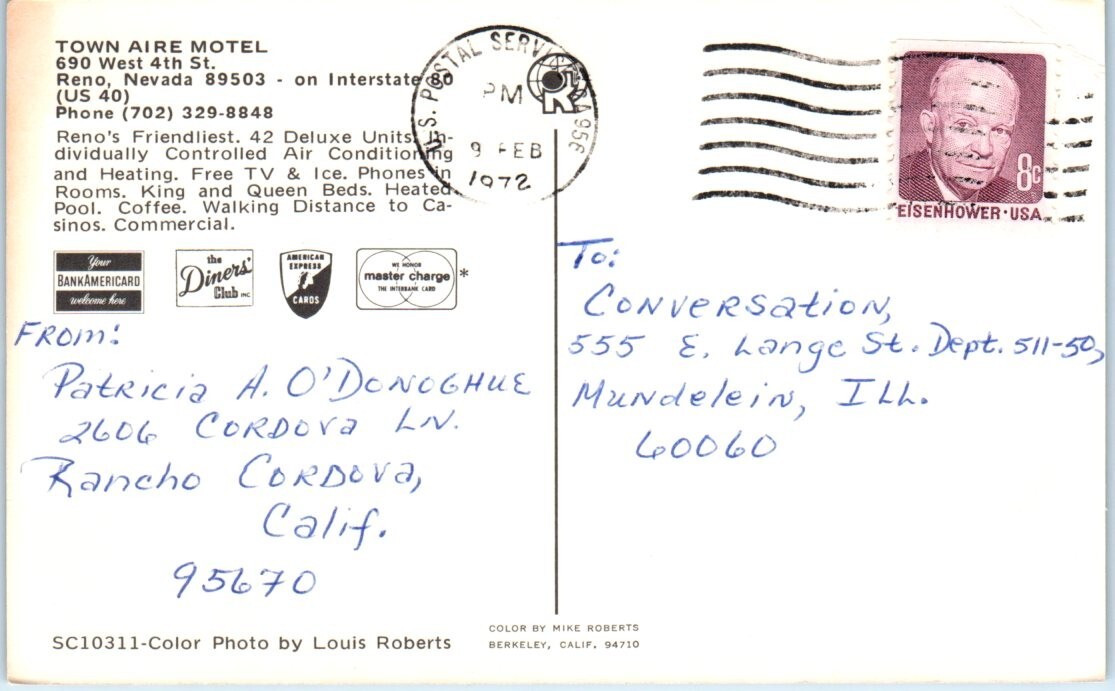 TOWN AIRE MOTEL
690 West 4th St.
Reno, Nevada 89503 - on Interstate 80
(US 40)
Phone (702) 329-8848
Reno's Friendliest. 42 Deluxe Units, In-
dividually Controlled Air Conditioning
and Heating. Free TV & Ice. Phones in
Rooms. King and Queen Beds. Heated
Pool. Coffee. Walking Distance to Ca-
sinos. Commercial.
Your
BANKAMERICARD
welcome here
the
Diners'
Club INC
AMERICAN
EXPRESS
CARDS
WE HONOR
master charge
THE INTERBANK CARD
*
FROM:
Patricia A. O'DONOGHUE
2606 CORDOVA LN.
Rancho CORDOVA,
Calif.
95670
SC10311-Color Photo by Louis Roberts
COLOR BY MIKE ROBERTS
BERKELEY, CALIF. 94710
U.S. POSTAL SERVICE 956
PM
9 FEB
1972
8c
EISENHOWER·USA
To:
CONVERSATION,
555 E. Lange St. Dept. 511-50,
Mundelein, ILL.
60060